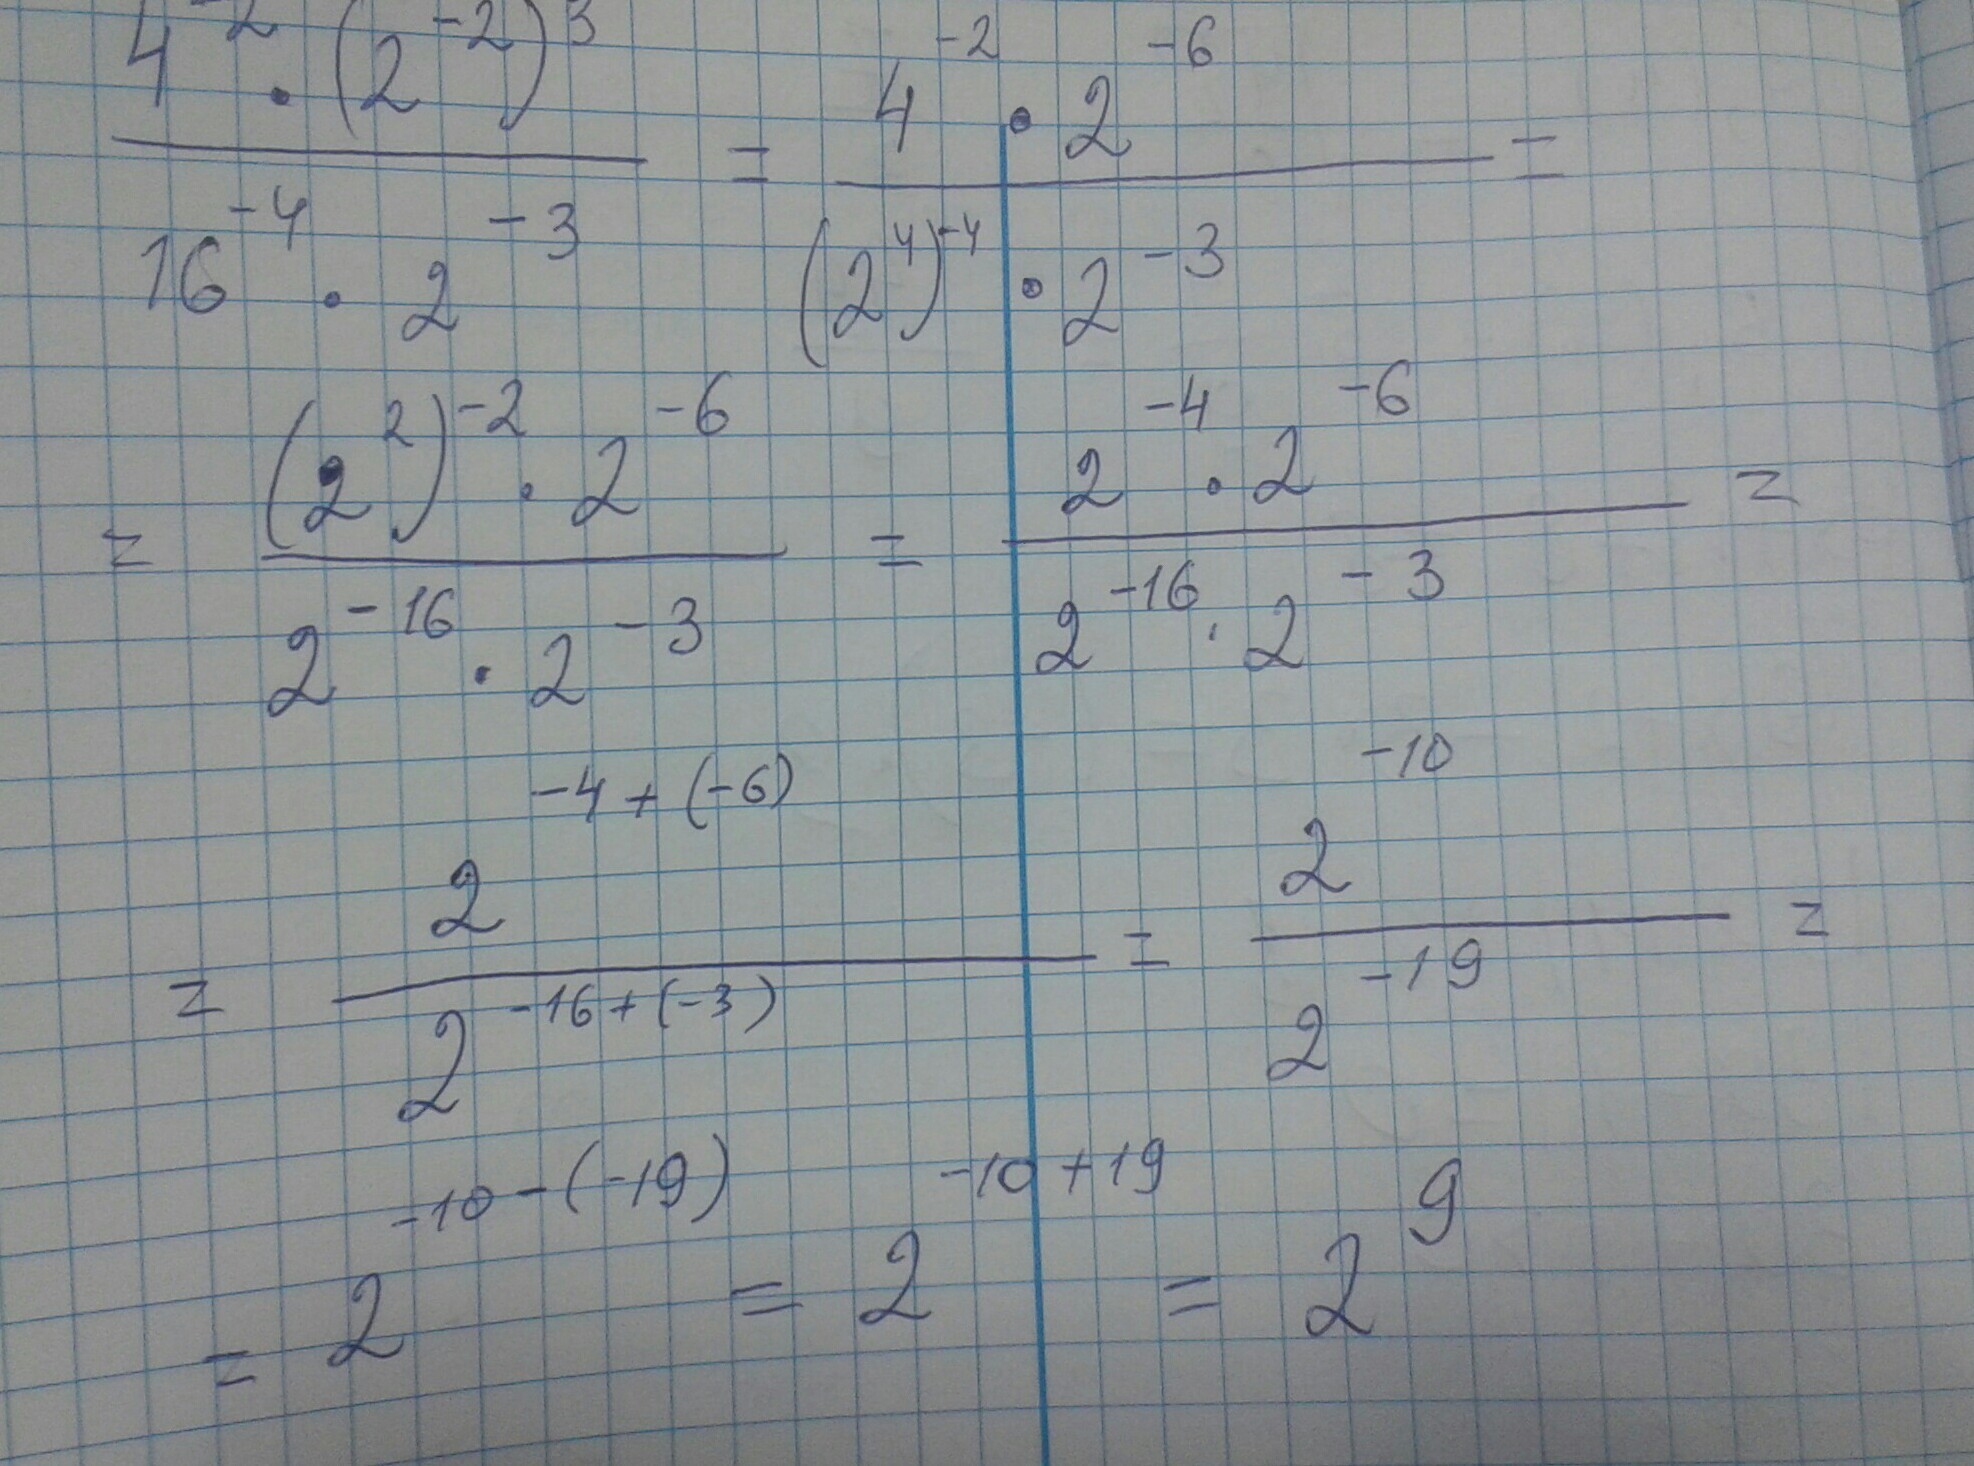 4^-2 · (2^-2)^3 / 16^-4 · 2^-3 = 4^-2 · 2^-6 / (2^4)^-4 · 2^-3 =
= (2^2)^-2 · 2^-6 / 2^-16 · 2^-3 = 2^-4 · 2^-6 / 2^-16 · 2^-3 =
= 2^-4+(-6) / 2^-16+(-3) = 2^-10 / 2^-19 =
= 2^-10-(-19) = 2^-10+19 = 2^9